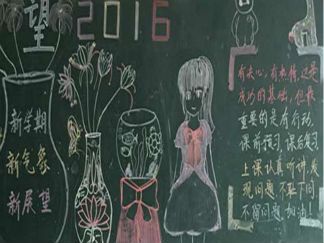 望 2016
新学期
新气象
新展望
有决心，有热情，这是
成功的基础，但最
重要的是有行动，
课前预习，课后复习
上课认真听讲，发
现问题，不耻下问
不留问题，加油！